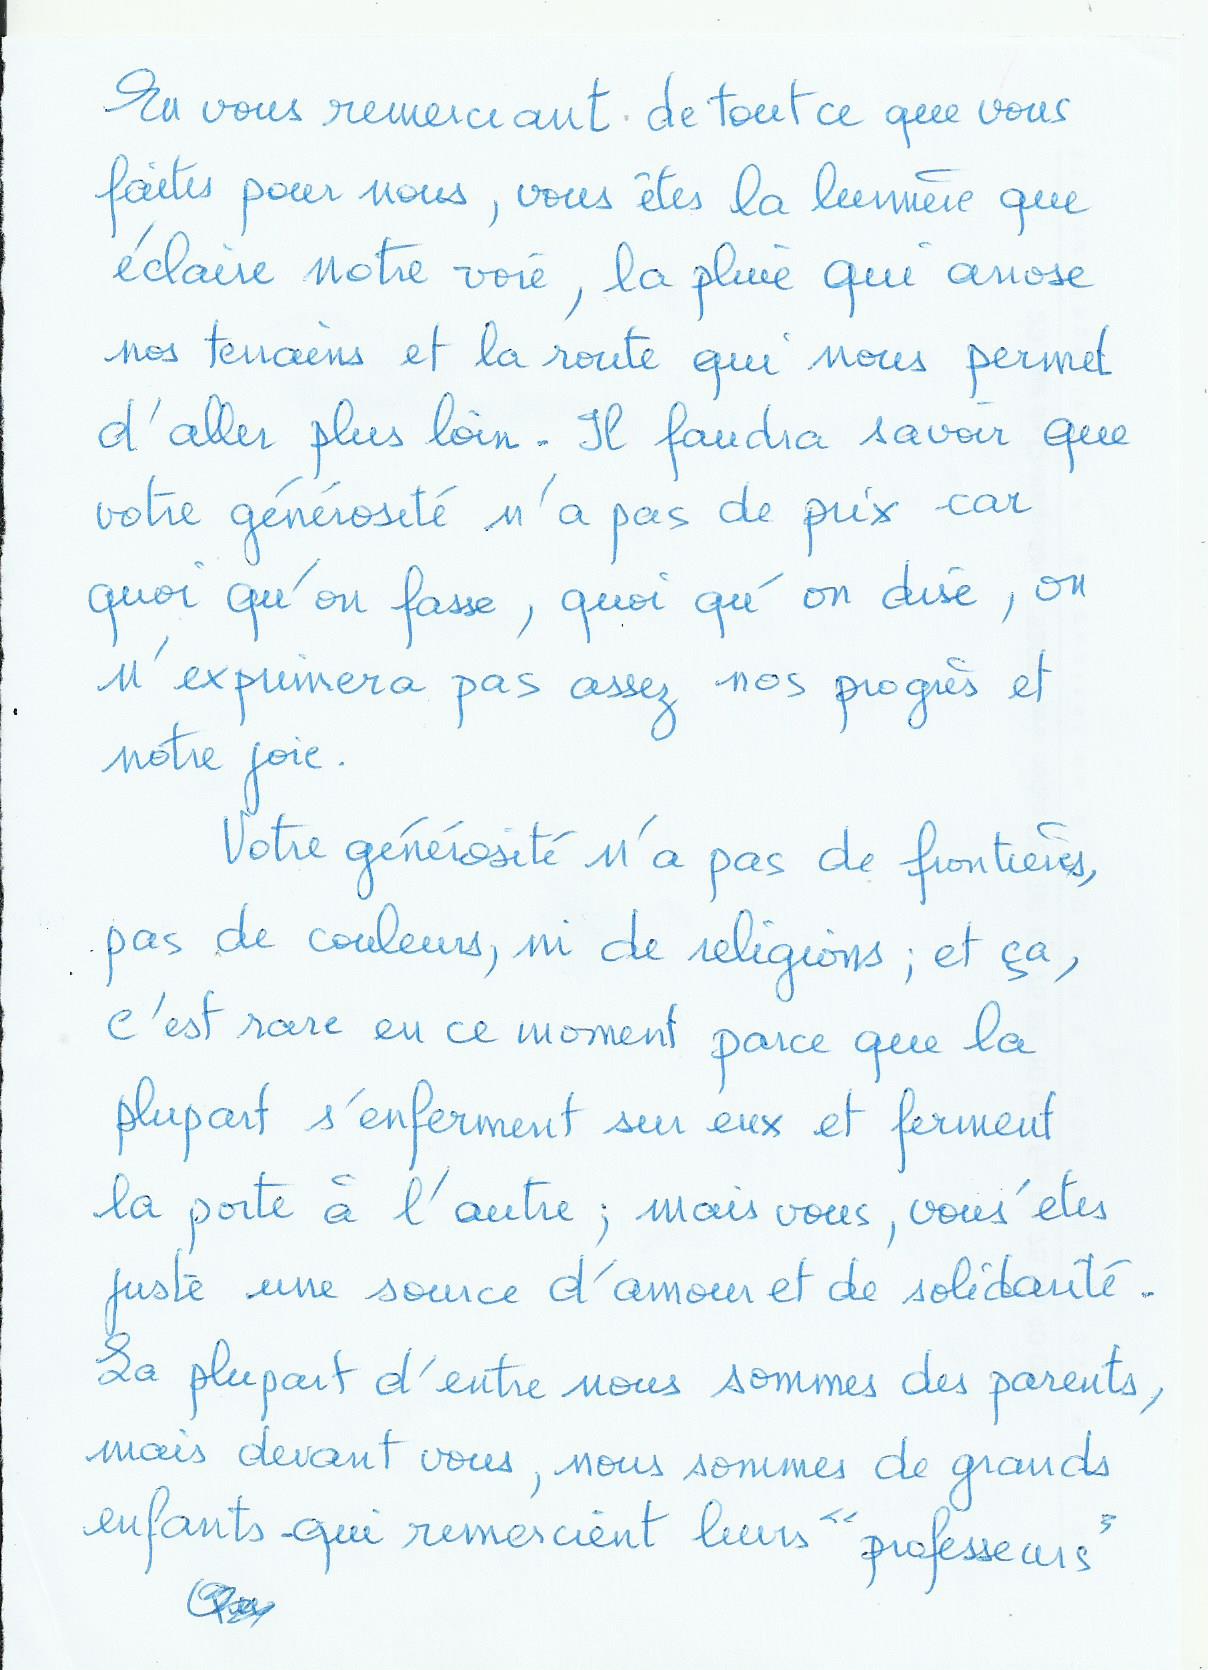 En vous remerciant de tout ce que vous
faites pour nous, vous êtes la lumière que
éclaire notre voie, la pluie qui arrose
nos terrains et la route qui nous permet
d'aller plus loin. Il faudra savoir que
votre générosité n'a pas de prix car
quoi qu'on fasse, quoi qu'on dise, on
n'exprimera pas assez nos progrès et
notre joie.
Votre générosité n'a pas de frontières,
pas de couleurs, ni de religions ; et ça,
c'est rare en ce moment parce que la
plupart s'enferment sur eux et ferment
la porte à l'autre ; mais vous, vous êtes
juste une source d'amour et de solidarité.
La plupart d'entre nous sommes des parents,
mais devant vous, nous sommes de grands
enfants qui remercient leurs "professeurs"